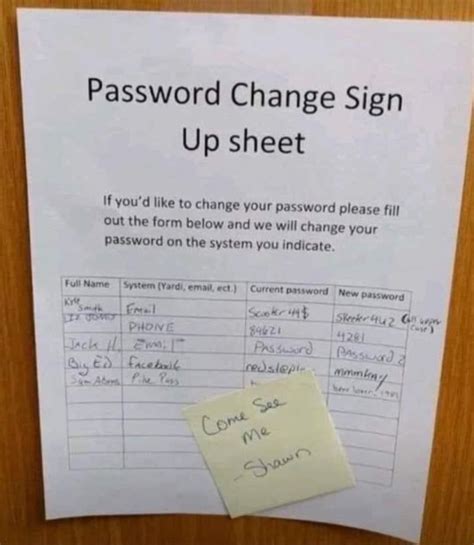 Password Change Sign
Up sheet
If you'd like to change your password please fill
out the form below and we will change your
password on the system you indicate.
Full Name System (Yardi, email, ect.) Current password New password
Smith Email Scooter44$ Skeeter442 (all upper
case)
Liz Jones PHONE 84621 4281
Jack H. Email Password Password2
Big Ed Facebook mmmkay
Sam Pike Pass
Come See
me
-Shawn